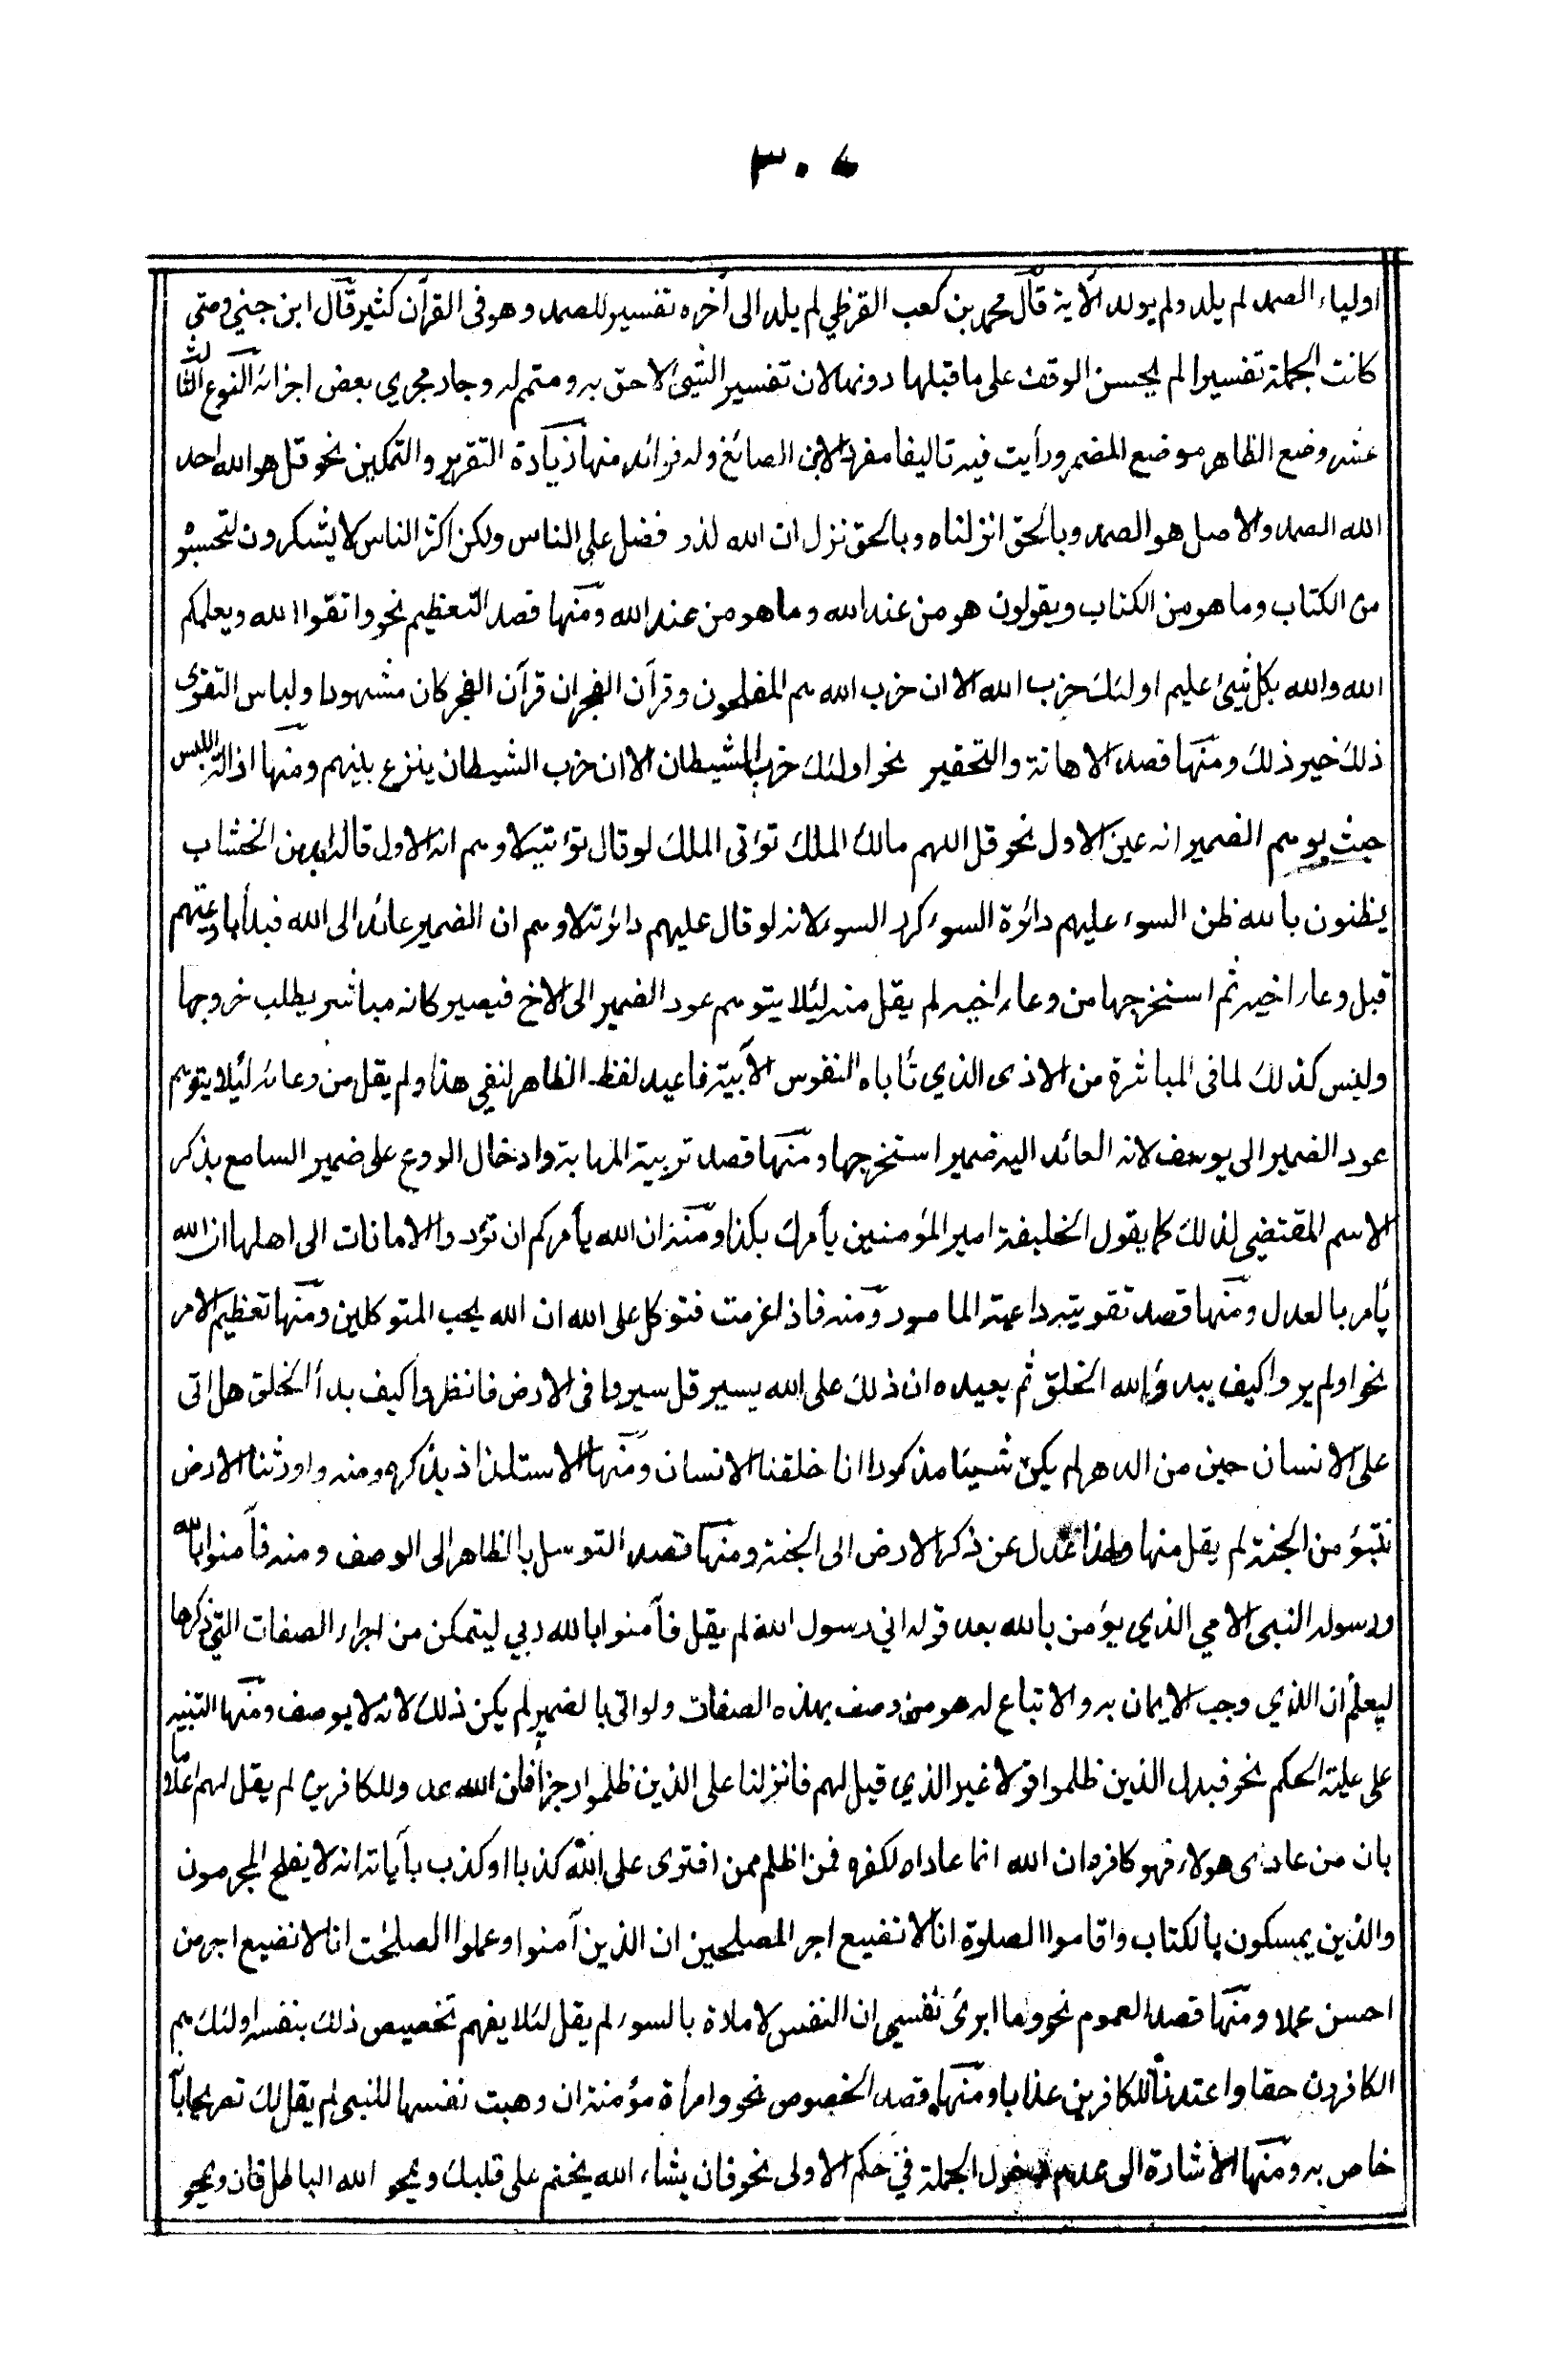 ٣٠٤
اولياء الصمد لم يلد ولم يولد الآية قال محمد بن كعب القرظي لم يلد الى آخره تفسير للصمد وهو فى القرآن كثير قال ابن جني ومتى
كانت الجملة تفسيرا لم يحسن الوقف على ما قبلها دونها لان تفسير الشيئ لاحق به ومتمم له وجار مجرى بعض اجزائه النوع الثالث
عشر وضع الظاهر موضع المضمر ورأيت فيه تاليفا مفردا لابن الصائغ وله فوائد منها زيادة التقرير والتمكين نحو قل هو الله احد
الله الصمد والاصل هو الصمد وبالحق انزلناه وبالحق نزل ان الله لذو فضل على الناس ولكن اكثر الناس لا يشكرون لتحسبو
من الكتاب وما هو من الكتاب ويقولون هو من عند الله وما هو من عند الله ومنها قصد التعظيم نحو واتقوا الله ويعلمكم
الله والله بكل شيئ عليم اولئك حزب الله الا ان حزب الله هم المفلحون وقرآن الفجر ان قرآن الفجر كان مشهودا ولباس التقوى
ذلك خير ذلك ومنها قصد الاهانة والتحقير نحو اولئك حزب الشيطان الا ان حزب الشيطان ينزع بينهم ومنها ازالة اللبس
حيث يوهم الضمير انه عين الاول نحو قل اللهم مالك الملك تؤتى الملك لو قال تؤتيه لاوهم انه الاول قاله ابن الخشاب
يظنون بالله ظن السوء عليهم دائرة السوء كرر السوء لانه لو قال عليهم دائرته لاوهم ان الضمير عائد الى الله فبدأ باوعيتهم
قبل وعاء اخيه ثم استخرجها من وعاء اخيه لم يقل منه ليئلا يتوهم عود الضمير الى الاخ فيصير كانه مباشر يطلب خروجها
وليس كذلك لما فى المباشرة من الاذى الذي تأباه النفوس الآبية فاعيد لفظ الظاهر لنفي هذا ولم يقل من وعائه ليئلا يتوهم
عود الضمير الى يوسف لانه العائد اليه ضمير استخرجها ومنها قصد تربية المهابة وادخال الروع على ضمير السامع بذكر
الاسم المقتضي لذلك كما يقول الخليفة امير المؤمنين يأمرك بكذا ومنه ان الله يأمركم ان تؤدوا الامانات الى اهلها ان الله
يأمر بالعدل ومنها قصد تقوية داعية المامور ومنه فاذا عزمت فتوكل على الله ان الله يحب المتوكلين ومنها تعظيم الامر
نحو اولم يروا كيف يبدؤ الله الخلق ثم يعيده ان ذلك على الله يسير قل سيروا فى الارض فانظروا كيف بدأ الخلق هل اتى
على الانسان حين من الدهر لم يكن شيئا مذكورا انا خلقنا الانسان ومنها الاستلذاذ بذكره ومنه واورثنا الارض
نتبؤ من الجنة لم يقل منها ولهذا عدل عن ذكر الارض الى الجنة ومنها قصد التوسل بالظاهر الى الوصف ومنه فآمنوا بالله
ورسوله النبى الامي الذي يؤمن بالله بعد قوله اني رسول الله لم يقل فآمنوا بالله وبي ليتمكن من اجراء الصفات التي ذكرها
ليعلم ان الذي وجب الايمان به والاتباع له هو من وصف بهذه الصفات ولو اتى بالضمير لم يكن ذلك لانه لا يوصف ومنها التنبيه
على علية الحكم نحو فبدل الذين ظلموا قولا غير الذي قيل لهم فانزلنا على الذين ظلموا رجزا فان الله عدو للكافرين لم يقل لهم اعلاما
بان من عادى هولاء فهو كافر وان الله انما عاداه لكفره فمن اظلم ممن افترى على الله كذبا او كذب بآياته انه لا يفلح المجرمون
والذين يمسكون بالكتاب واقاموا الصلوة انا لا نضيع اجر المصلحين ان الذين آمنوا وعملوا الصلحت انا لا نضيع اجر من
احسن عملا ومنها قصد العموم نحو وما ابرئ نفسي ان النفس لامارة بالسوء لم يقل لئلا يفهم تخصيص ذلك بنفسه اولئك هم
الكافرون حقا واعتدنا للكافرين عذابا ومنها قصد الخصوص نحو وامرأة مؤمنة ان وهبت نفسها للنبى لم يقل لك تصريحا بانه
خاص به ومنها الاشارة الى عدم دخول الجملة في حكم الاولى نحو فان يشاء الله يختم على قلبك ويمحو الله الباطل فان ويمحو